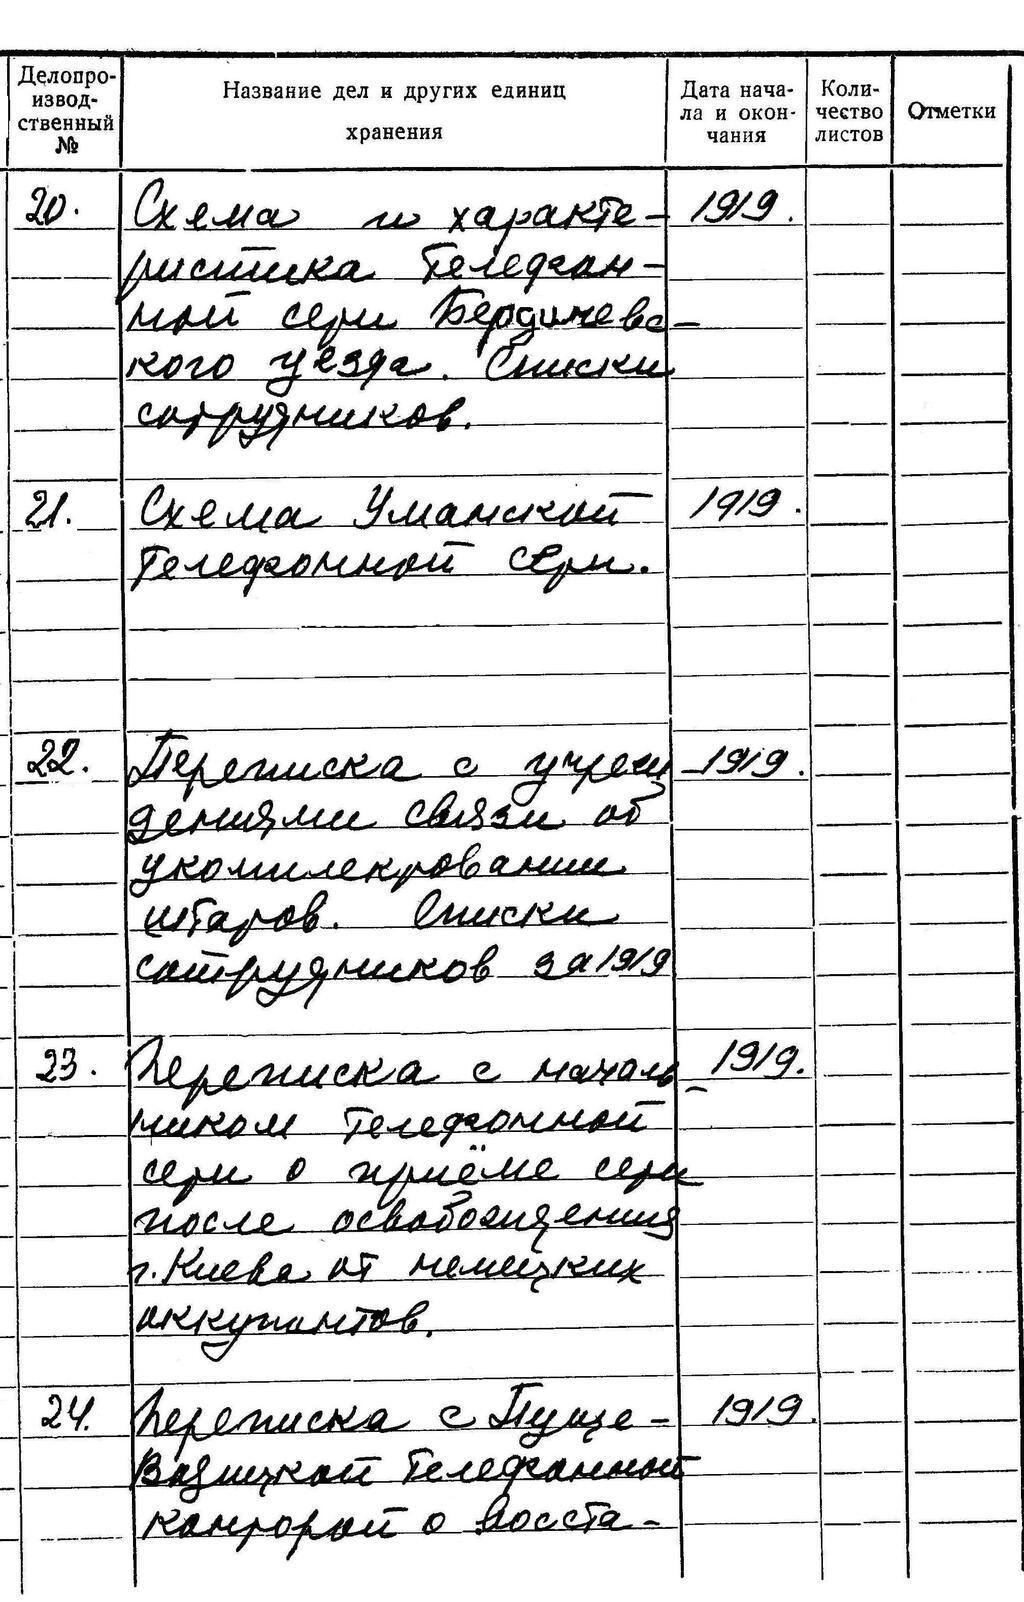 Делопро-
извод-
ственный
№
Название дел и других единиц
хранения
Дата нача-
ла и окон-
чания
Коли-
чество
листов
Отметки
20.
Схема и характе-
ристика телефон-
ной сети Бердичевс-
кого уезда. Списки
сотрудников.
1919.
21.
Схема Уманской
телефонной сети.
1919.
22.
Переписка с учреж
дениями связи об
укомплектовании
штатов. Списки
сотрудников за 1919
1919.
23.
Переписка с началь-
ником телефонной
сети о приёме сети
после освобождения
г. Киева от немецких
оккупантов.
1919.
24.
Переписка с Пуще-
Водицкой телефонной
конторой о восста-
1919.